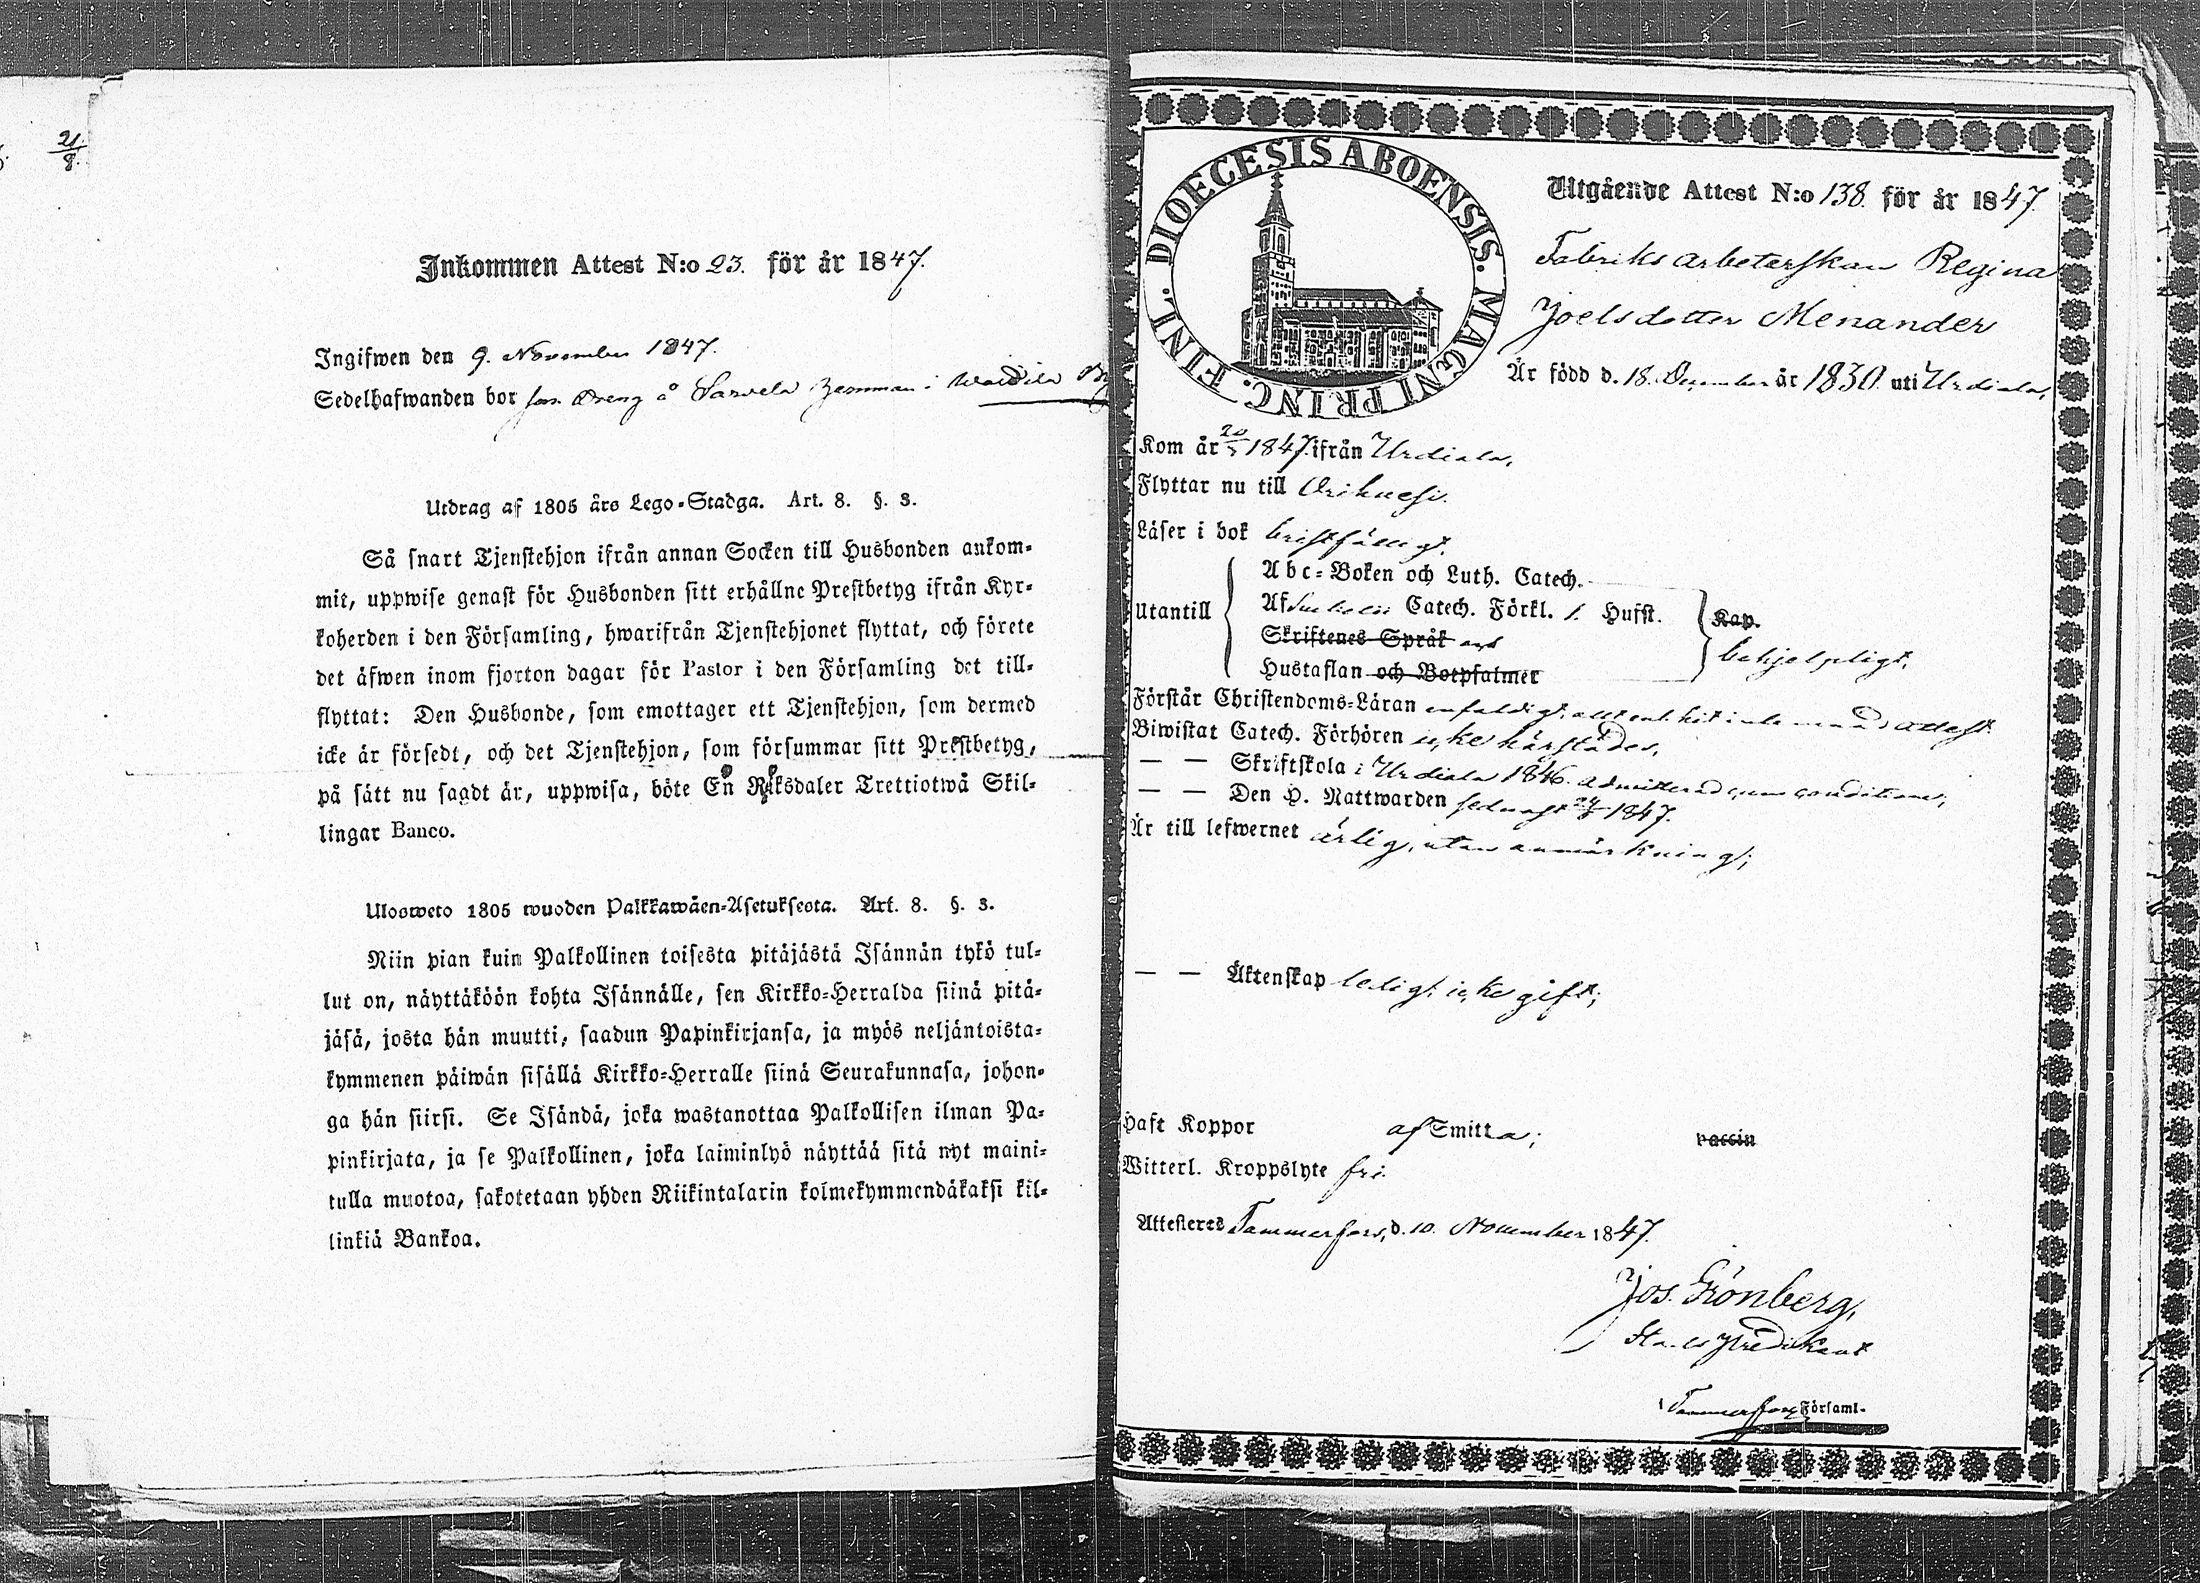 21
8.
Inkommen Attest N:o 23. för år 1847.
Ingifwen den 9. November 1847.
Sedelhafwanden bor som Dreng å Sarvela hemman i
Utdrag af 1805 års Lego-Stadga. Art. 8. §. 3.
Så snart Tjenstehjon ifrån annan Socken till Husbonden ankom-
mit, uppwise genast för Husbonden sitt erhållne Prestbetyg ifrån Kyr-
koherden i den Församling, hwarifrån Tjenstehjonet flyttat, och förete
det äfwen inom fjorton dagar för Pastor i den Församling det till-
flyttat: Den Husbonde, som emottager ett Tjenstehjon, som dermed
icke är försedt, och det Tjenstehjon, som försummar sitt Prestbetyg,
på sätt nu sagdt är, uppwisa, böte En Riksdaler Trettiotwå Skil-
lingar Banco.
Ulosweto 1805 wuoden Palkkawäen-Asetuksesta. Art. 8. §. 3.
Niin pian kuin Palkollinen toisesta pitäjästä Isännän tykö tul-
lut on, näyttäköön kohta Isännälle, sen Kirkko-Herralda siinä pitä-
jäsä, josta hän muutti, saadun Papinkirjansa, ja myös neljäntoista-
kymmenen päiwän sisällä Kirkko-Herralle siinä Seurakunnasa, johon-
ga hän siirsi. Se Isändä, joka wastanottaa Palkollisen ilman Pa-
pinkirjata, ja se Palkollinen, joka laiminlyö näyttää sitä nyt maini-
tulla muotoa, sakotetaan yhden Riikintalarin kolmekymmendäkaksi kil-
linkiä Bankoa.
DIOECESIS ABOENSIS. MAGNI PRINC. FINL.
Utgående Attest N:o 138. för år 1847.
Fabriks arbeterskan Regina
Joelsdotter Menander
Är född d. 18. December år 1830. uti Urdiala,
Kom år 1847. ifrån Urdiala,
Flyttar nu till Orihvesi.
Läser i bok bristfälligt.
Utantill
Abc-Boken och Luth. Catech.
Af Catech. Förkl. Husst.
Kap.
Skriftenes Språk
Hustaflan och Botpsalmer
behjelpligt,
Förstår Christendoms-Läran enfaldigt, attest
Biwistat Catech. Förhören icke härstädes,
— — Skriftskola i Urdiala 1846. admitterad cum conditione;
— — Den H. Nattwarden sednast 1847.
Är till lefwernet ärlig, utan anmärkning;
— — Äktenskap ledig, icke gift;
Haft Koppor af Smitta; vaccin
Witterl. Kroppslyte fri.
Attesteres Tammerfors, d. 10. November 1847.
Jos. Grönberg,
Stads Predikant
Tammerfors Församl.